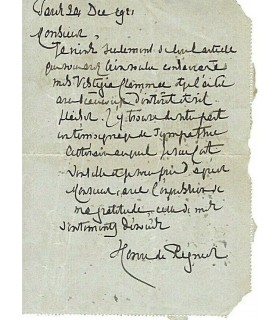 Paris 24 Dec 1921
Monsieur,
Je viens seulement de lire l'article
que vous avez bien voulu consacrer à
mes Vestigia Flammae et je l'ai lu
avec beaucoup d'intérêt et
J'y trouve de votre part
un témoignage de sympathie
auquel je suis fort
sensible et je vous prie d'agréer
Monsieur, avec l'expression de
ma gratitude, celle de mes
sentiments dévoués
Henri de Régnier